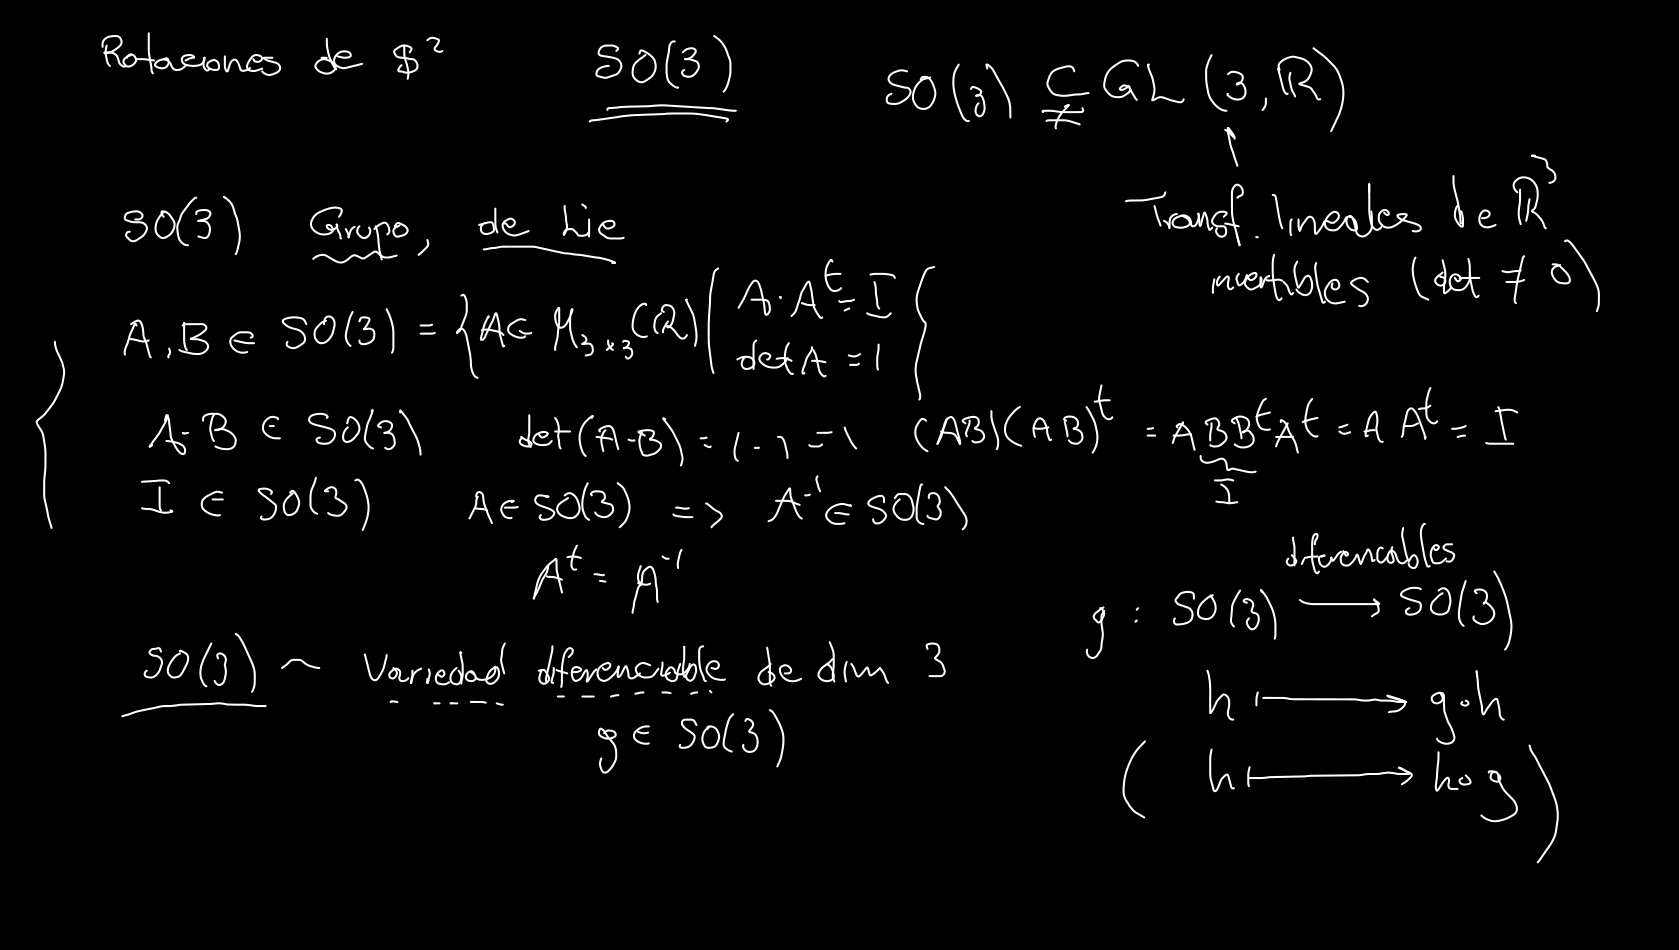 Rotaciones de $²   SO(3)   SO(3) ⊊ GL(3,ℝ)
Transf. lineales de ℝ³
invertibles (det ≠ 0)
SO(3) Grupo, de Lie
A,B ∈ SO(3) = {A ∈ M₃ₓ₃(ℝ) | A·Aᵗ = I
det A = 1}
A·B ∈ SO(3)   det(A·B) = 1·1 = 1   (AB)(AB)ᵗ = ABBᵗAᵗ = A Aᵗ = I
I
I ∈ SO(3)   A ∈ SO(3) => A⁻¹ ∈ SO(3)
Aᵗ = A⁻¹
SO(3) ~ Variedad diferenciable de dim 3
g ∈ SO(3)
diferenciables
g : SO(3) ⟶ SO(3)
h ⟼ g·h
(h ⟼ h∘g)